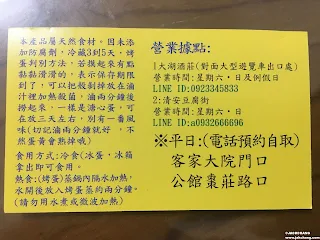 本產品屬天然食材。因未添
加防腐劑，冷藏3到5天，烤
蛋判別方法，若摸起來有點
黏黏滑滑的，表示保存期限
到了，可以把殼剝掉放在滷
汁裡加熱殺菌，滷兩分鐘後
撈起來，一樣是溏心蛋，可
在放三天左右，別有一番風
味(切記滷兩分鐘就好，不
然蛋黃會熟掉哦)
食用方式:冷食(冰蛋，冰箱
拿出即可食用。
熱食:(烤蛋)蒸鍋內隔水加熱，
水開後放入烤蛋蒸約兩分鐘。
(請勿用水煮或微波加熱)
營業據點:
1大湖酒莊(對面大型遊覽車出口處)
營業時間:星期六、日及例假日
LINE ID:0923345833
2:清安豆腐街
營業時間:星期六、日
LINE ID:a0932666696
※平日:(電話預約自取)
客家大院門口
公館棗莊路口